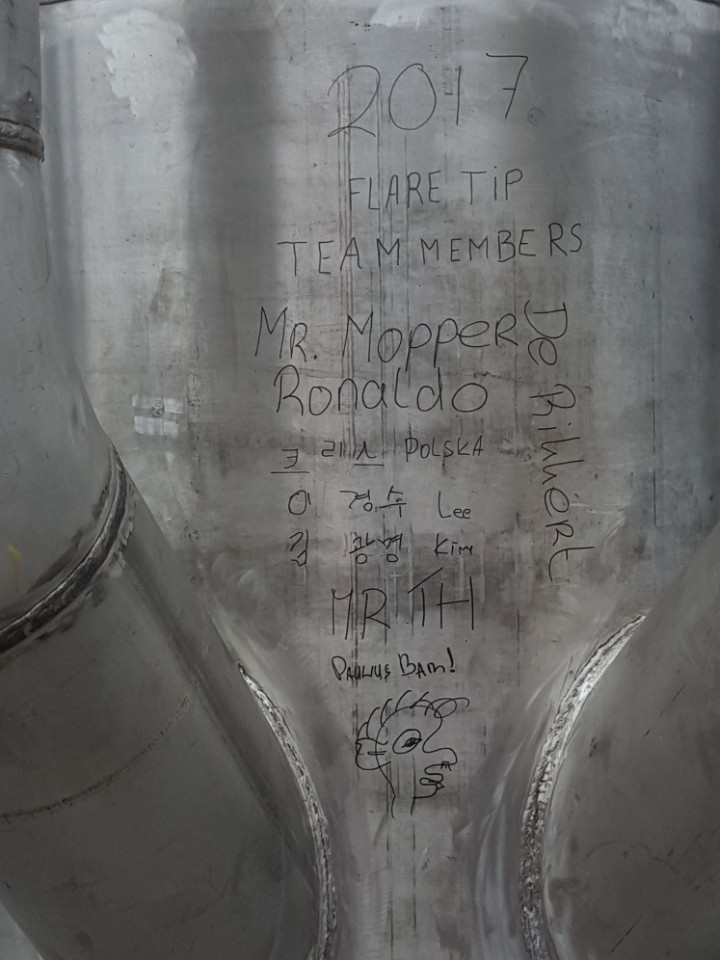 2017
FLARE TiP
TEAM MEMBERS
MR. MoppeR
Ronaldo
크리스 POLSKA
이 경수 Lee
김 광영 Kim
MR TH
De